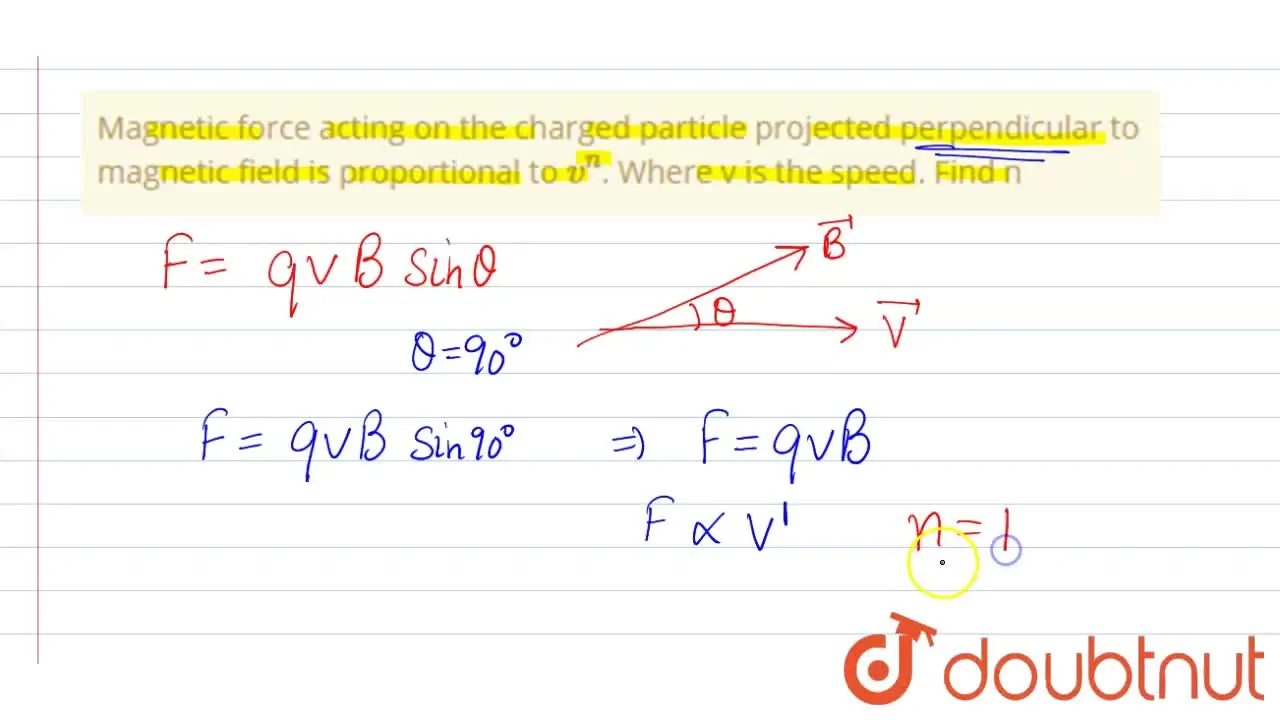 Magnetic force acting on the charged particle projected perpendicular to
magnetic field is proportional to vⁿ. Where v is the speed. Find n
F = qvB sinθ
B⃗
θ
V⃗
θ=90°
F = qvB sin90° ⇒ F = qvB
F ∝ V¹ n = 1
doubtnut